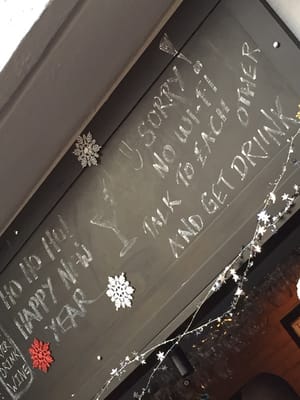 HO HO HO!
HAPPY NEW
YEAR
"SORRY,
NO WI FI
TALK TO EACH OTHER
AND GET DRUNK
DRUNK
WINE